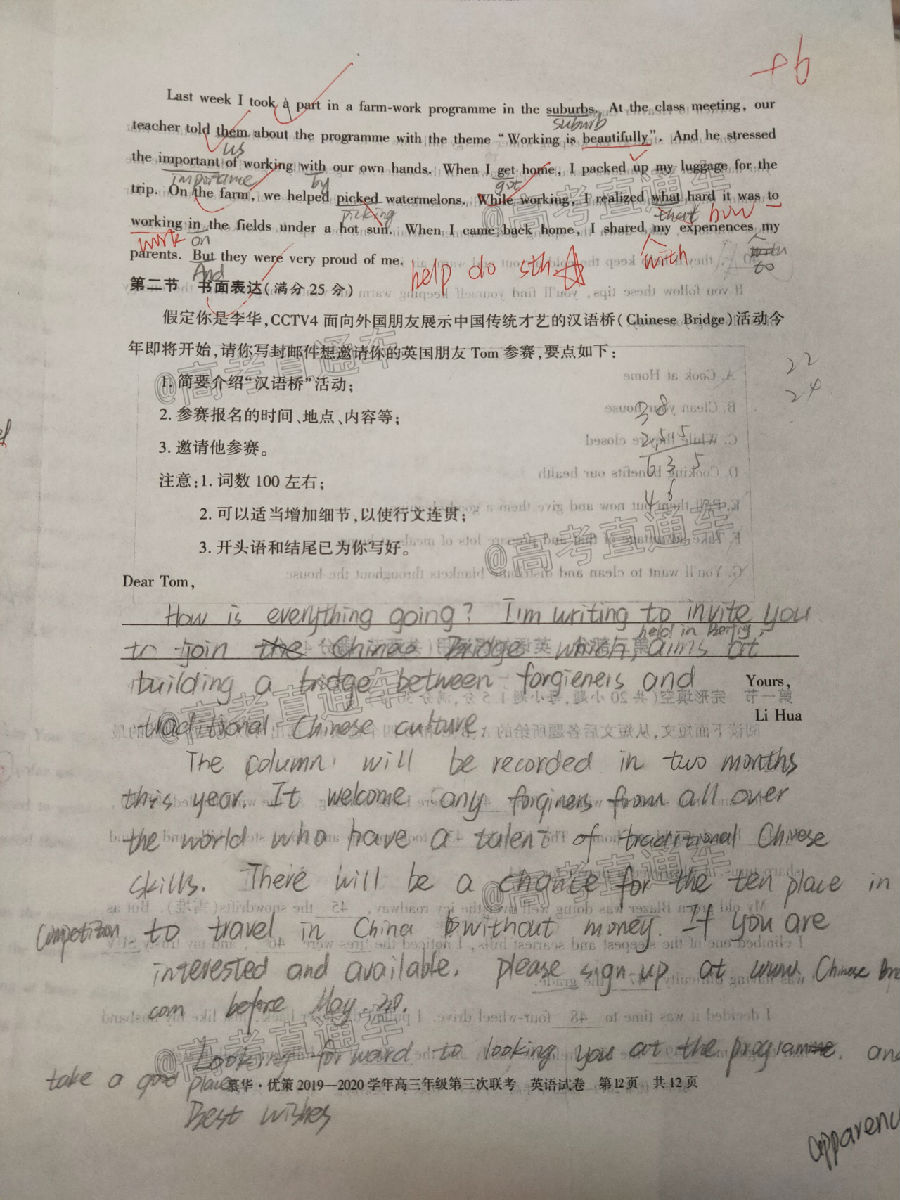 +6
Last week I took a part in a farm-work programme in the suburbs. At the class meeting, our
suburb
teacher told them about the programme with the theme "Working is beautifully". And he stressed
us
the important of working with our own hands. When I get home, I packed up my luggage for the
importance by got
trip. On the farm, we helped picked watermelons. While working, I realized what hard it was to
picking that how
working in the fields under a hot sun. When I came back home, I shared my experiences my
work on with
to
parents. But they were very proud of me.
And help do sth
第二节 书面表达(满分 25 分)
假定你是李华,CCTV4 面向外国朋友展示中国传统才艺的汉语桥(Chinese Bridge)活动今
年即将开始,请你写封邮件想邀请你的英国朋友 Tom 参赛,要点如下:
1. 简要介绍"汉语桥"活动;
2. 参赛报名的时间、地点、内容等;
3. 邀请他参赛。
注意:1. 词数 100 左右;
2. 可以适当增加细节,以使行文连贯;
3. 开头语和结尾已为你写好。
22
24
38
635
46
Dear Tom,
How is everything going? I'm writing to invite you
held in
to join the Chinese Bridge which, aims at
building a bridge between forgieners and
Yours,
Li Hua
traditional Chinese culture.
The column will be recorded in two months
this year. It welcome any forginers from all over
the world who have a talent of traditional Chinese
skills. There will be a chance for the ten place in
competition to travel in China without money. If you are
interested and available, please sign up at www. Chinese
com before May 20.
Looking forward to looking you at the programme, and
take a good place
Best wishes
@高考直通车
@高考直通车
@高考直通车
@高考直通车
@高考直通车
@高考直通车
@高考直通车
冀华·优策 2019—2020 学年高三年级第三次联考 英语试卷 第12页 共12页